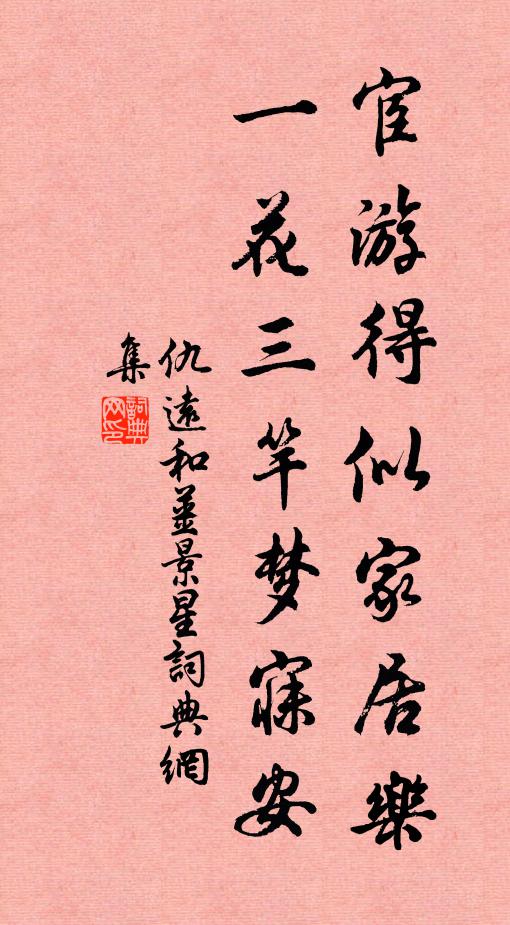 宦游得似家居樂
一花三竿梦寐安
仇遠和薑景星詞典網
集
詞典网印